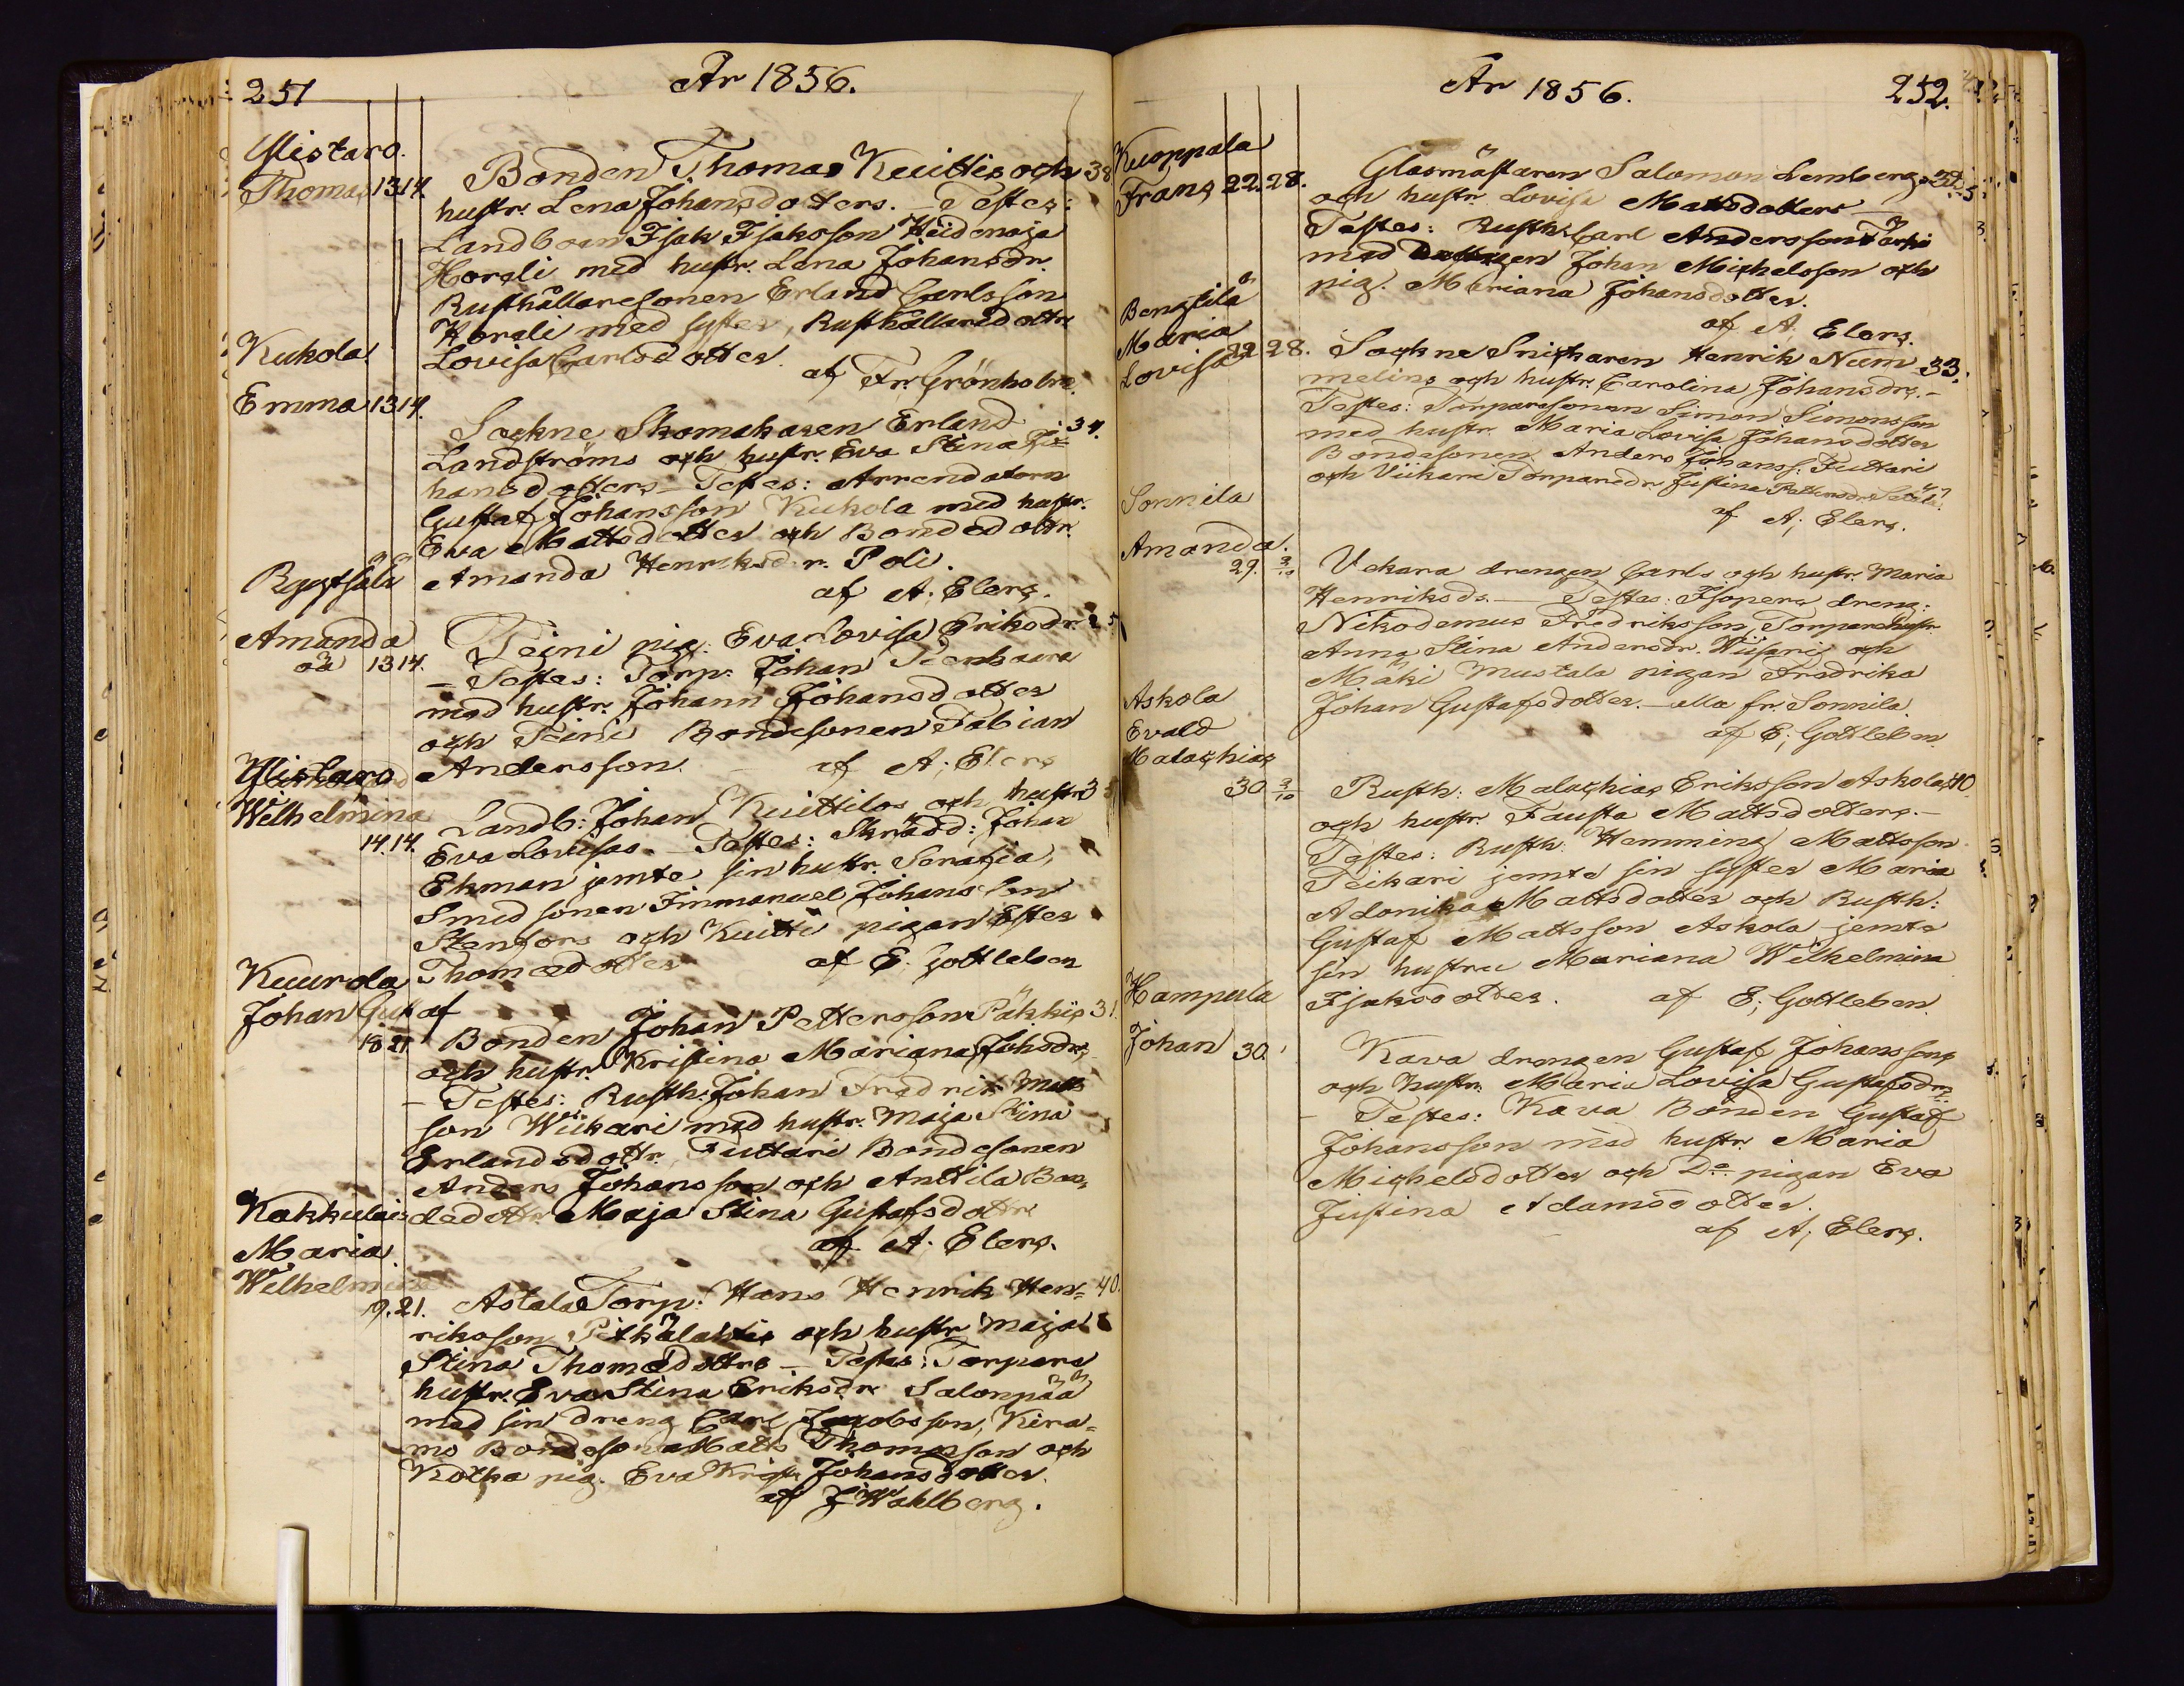 251
År 1856.
Ylistaro.
Thomas 13 14. Bonden Thomas Kuittis och 38
hustr. Lena Johansdotters. – Testes:
Landboen Isak Isaksson Hiidenoja
Horeli med hustr. Lena Johansdr.
Rusthållaresonen Erland Carlsson
Horeli med syster, Rusthållaredottr
Lovisa Carlsdotter. af Fr. Grönholm.
Kukola
Emma 13 14. Sockne Skomakaren Erland 34.
Landströms och hustr. Eva Stina Jo=
hansdotters – Testes: Arrendatorn
Gustaf Johansson Kukola med hustr.
Eva Mattsdotter och Bondedottr.
Amanda Henriksdr. Poli.
af A. Elers.
Amanda
oä 13 14. Teini pig. Eva Lovisa Eriksdr. 25
– Testes: Torp. Johan
med hustr. Johann Johansdotter
och Teini Bondesonen Fabian
Andersson. – af A. Elers
Ylistaro
Wilhelmina
14. 14. Landb: Johan Kuittilas och hustr. 3
Eva Lovisas – Testes: Skrädd: Johan
Ekman jemte sin hustr. Serafia,
Smedsonen Immanuel Johansson
Stenfors och Kuitti pigan Ester
Thomædotter af E. Gottleben
Kuurola
Johan Gustaf
18 21. Bonden Johan Pettersson Päkkis 31.
och hustr. Kristina Mariana Johsdrs
– Testes: Rusth: Johan Fredrik Matts
son Wiikari med hustr. Maja Stina
Erlandsdottr. Futtari Bondesonen
Anders Johansson och Anttila Bon=
dedottr. Maja Stina Gustafsdottr
af A. Elers.
Kakkulais
Maria
Wilhelmina
19. 21. Astala Torp: Hans Henrik Hen= 40.
riksson Pitkälahtis och hustr Maja
Stina Thomædottrs – Testes: Torpare
hustr. Eva Stina Eriksdr. Salonpää
med sin dreng Carl Jacobsson, Kira=
mo Bondeson Matts Thomasson och
Kotka pig. Eva Krist. Johansdotter.
af J Wahlberg.
År 1856.
252.
Kuoppala
Frans 22. 28. Glasmästaren Salomon Lembergs
och hustr. Lovisa Mattsdotters –
Testes: Rusth: Carl Andersson Tärki
med drengen Johan Michelsson och
pig. Mariana Johansdotter.
af A. Elers.
Bengtilä
Maria
Lovisa 22 28. Sockne Snickaren Henrik Num= 33.
melins och hustr. Carolina Johansdrs. –
Testes: Torparesonen Simon Simonsson
med hustr. Maria Lovisa Johansdotter
Bondesonen Anders Johanss. Futtari
och Viikari Torparedr. Justina Pettersdr
af A. Elers.
Sonnila
Amanda.
29. 3/10 Vekara drengen Carls och hustr. Maria
Henriksds. – Testes: Isopere dreng:
Nikodemus Fredriksson, Torparehustr
Anna Stina Andersdr. Wiisari, och
Mäki Mustala pigan Fredrika
Johan Gustafsdotter. – alla fr. Sonnila
af E. Gottleben.
Askola
Evald
Malachias
30 3/10 Rusth: Malachias Eriksson Askolas 40.
och hustr. Fausta Mattsdotters. –
Testes: Rusth. Hemming Mattsson
Teikari jemte sin syster Maria
Adonika Mattsdotter och Rusth:
Gustaf Mattsson Askola jemte
sin hustru Mariana Wilhelmina
Isaksdotter. af E. Gottleben.
Hampula
Johan 30. Kava drengen Gustaf Johanssons
och hustr. Maria Lovisa Gustafsdrs.
– Testes: Kava Bonden Gustaf
Johansson med hustr. Maria
Michelsdotter och Do pigan Eva
Justina Adamsdotter.
af A. Elers.